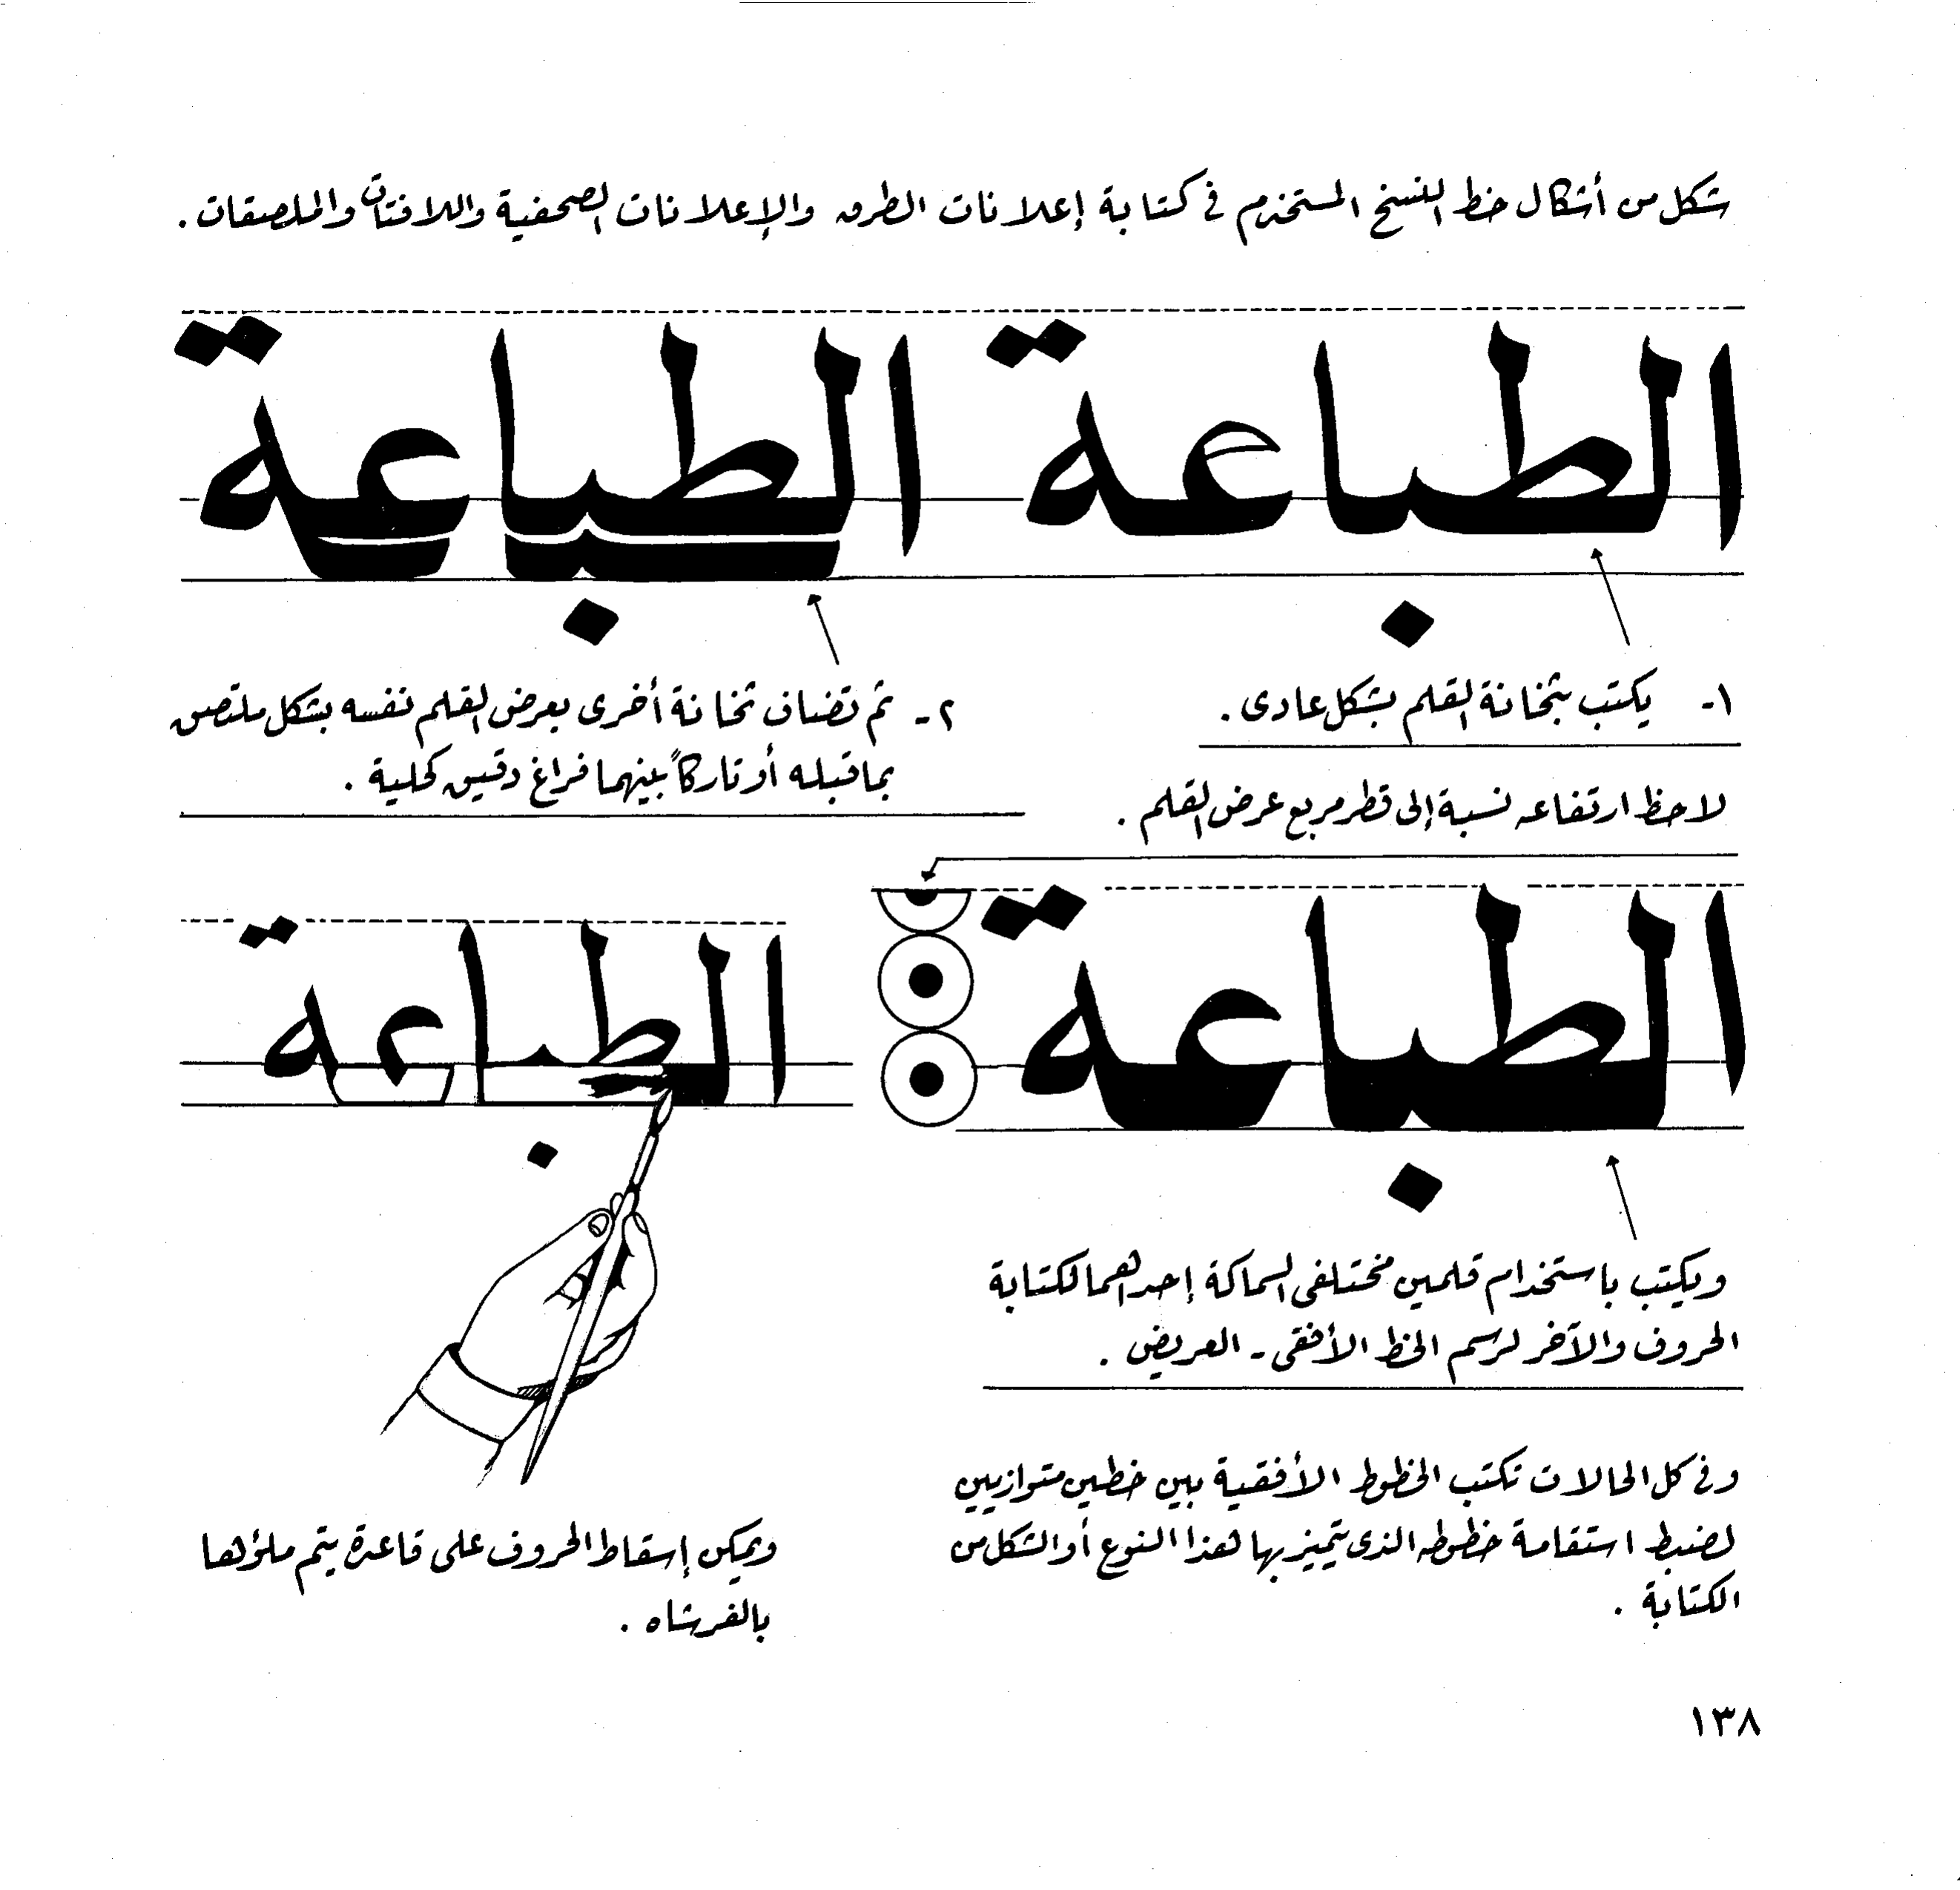 شكل من أشكال خط النسخ المستخدم في كتابة إعلانات الطرق والإعلانات الصحفية واللافتات والملصقات .
الطباعة الطباعة
١- يكتب بثخانة القلم بشكل عادى .
لاحظ ارتفاعه نسبة إلى قطر مربع عرض القلم .
٢- ثم تضاف ثخانة أخرى بعرض القلم نفسه بشكل ملتصق
بما قبله أو تاركاً بينهما فراغ دقيق كحلية .
الطباعة
الطباعة
ويكتب باستخدام قلمين مختلفى السماكة إحداهما لكتابة
الحروف والآخر لرسم الخط الأفقى - العريض .
وفى كل الحالات تكتب الخطوط الأفقية بين خطين متوازيين
لضبط استقامة خطوطه الذى يتميز بها هذا النوع أو الشكل من
الكتابة .
ويمكن إسقاط الحروف على قاعدة يتم ملؤها
بالفرشاه .
١٣٨